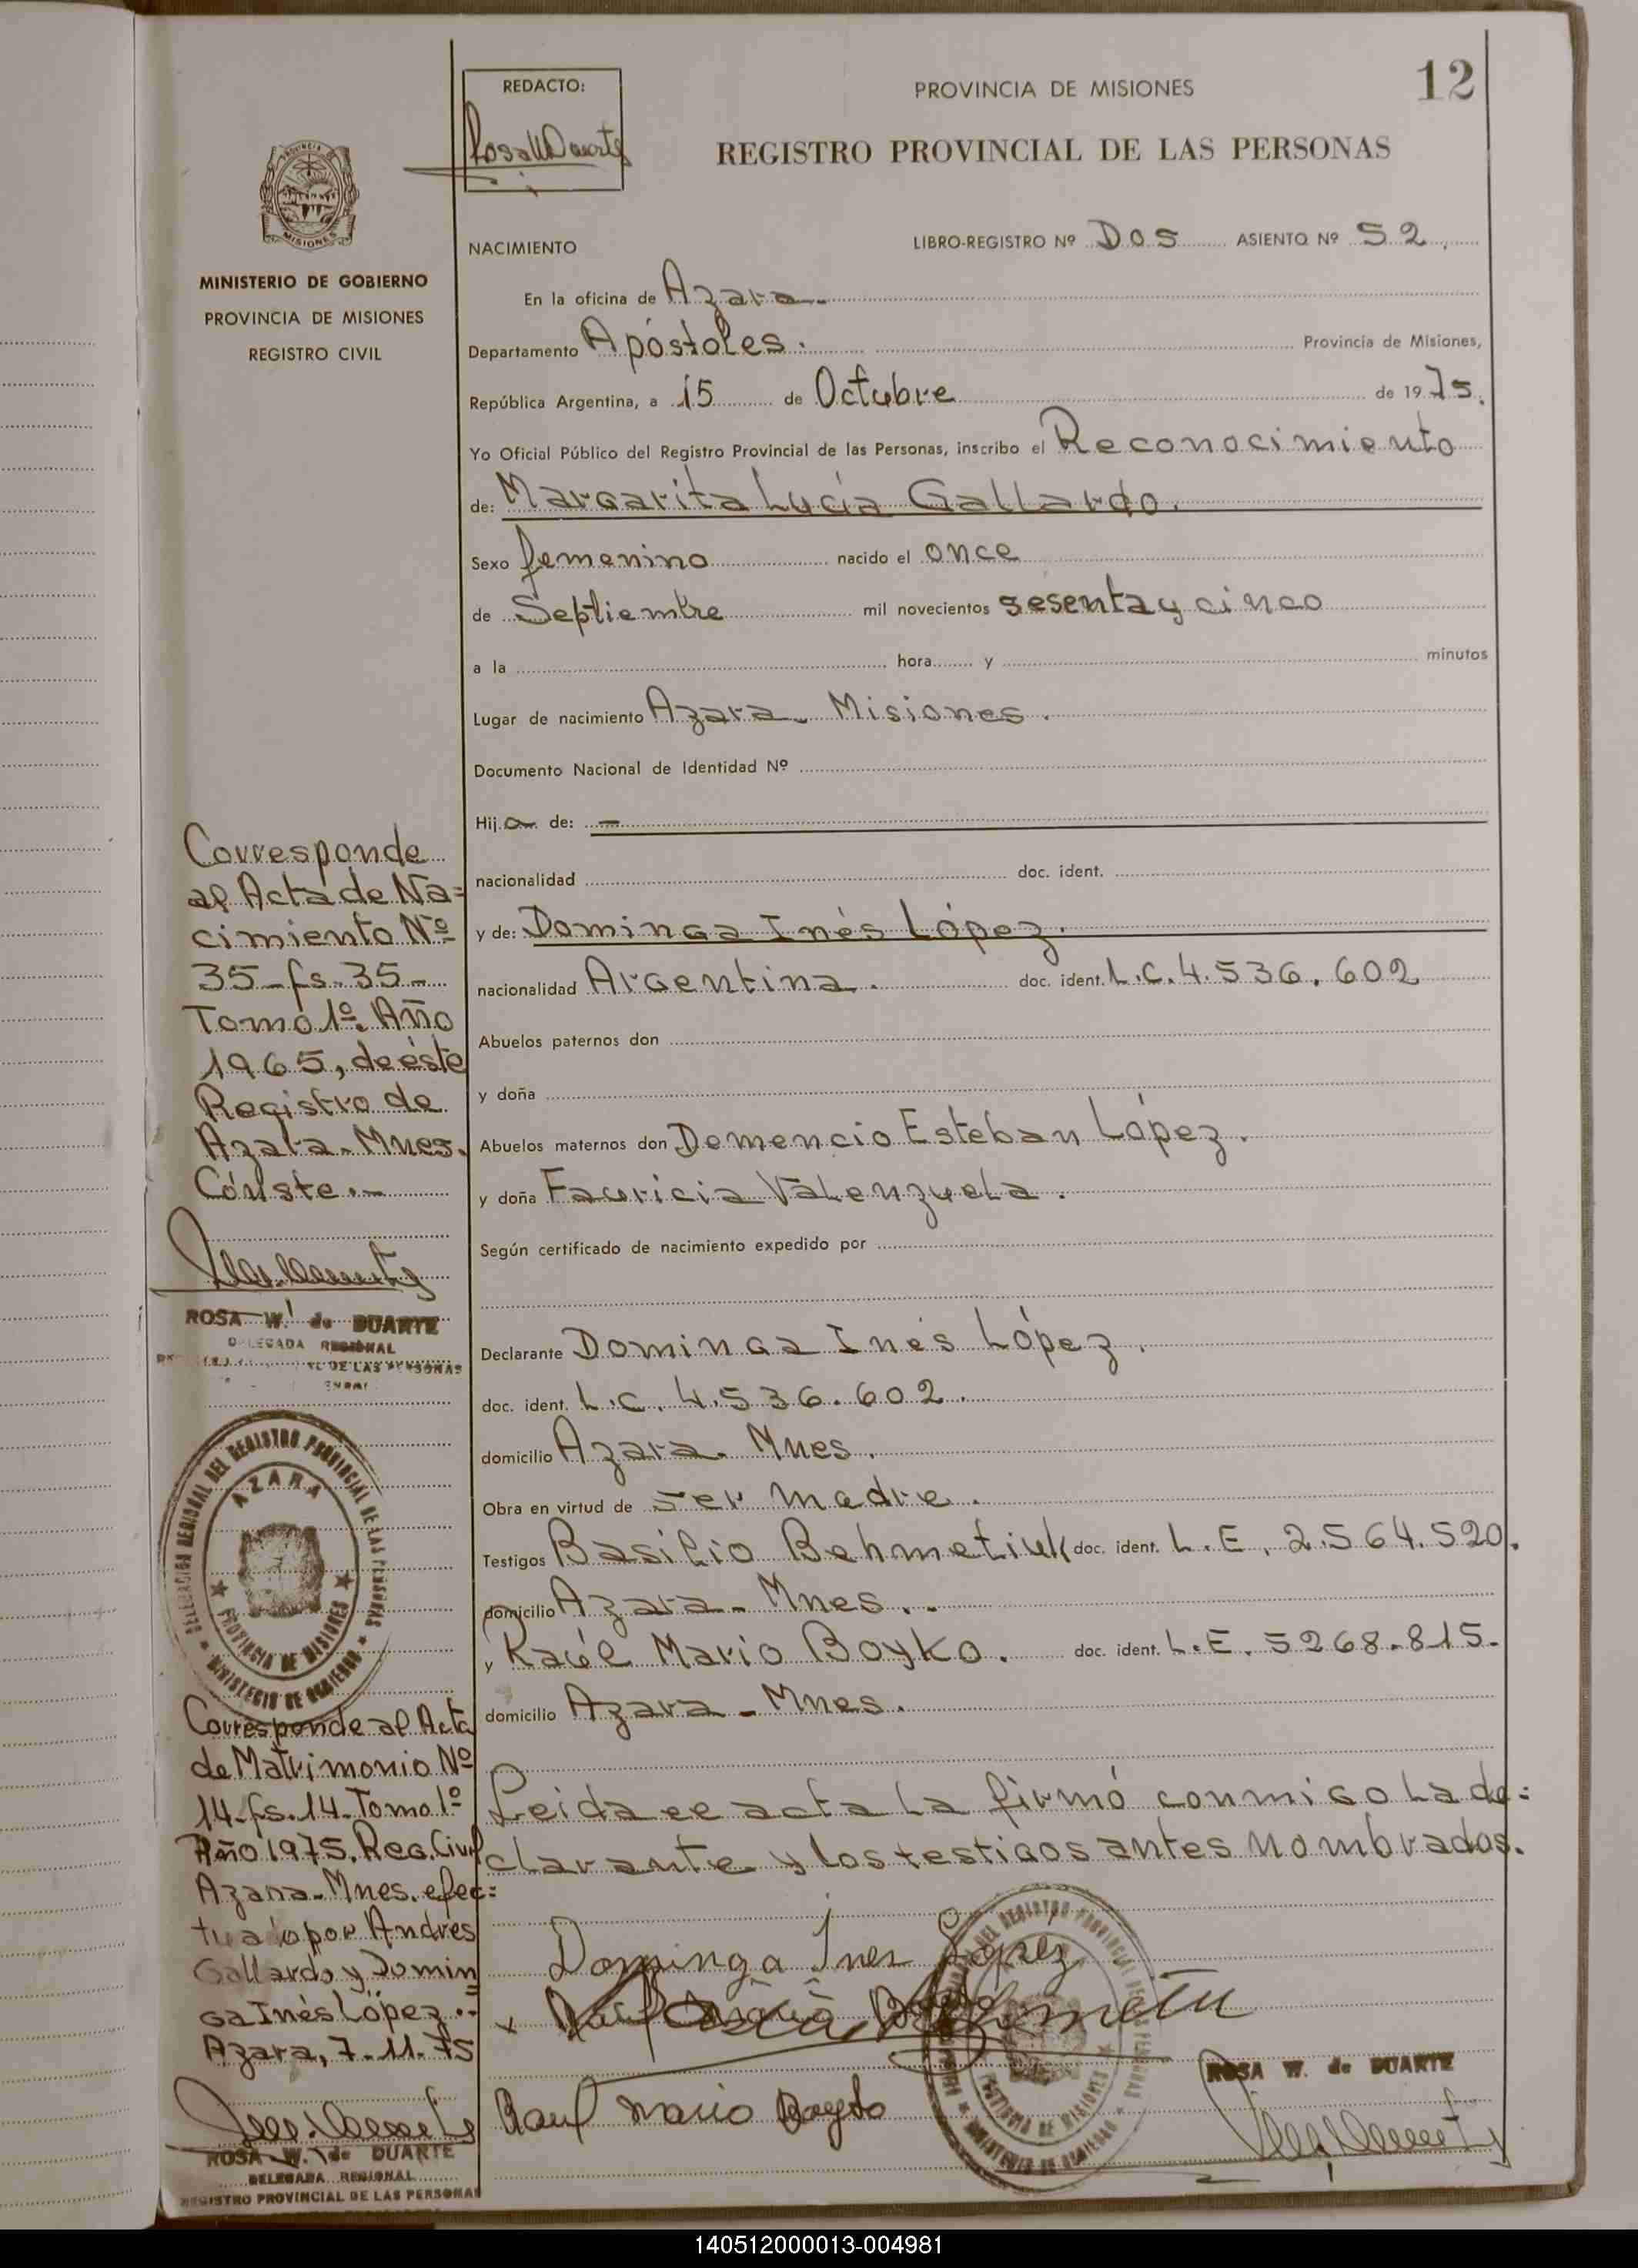 12
REDACTO:
PROVINCIA DE MISIONES
REGISTRO PROVINCIAL DE LAS PERSONAS
PROVINCIA
MISIONES
MINISTERIO DE GOBIERNO
PROVINCIA DE MISIONES
REGISTRO CIVIL
NACIMIENTO LIBRO-REGISTRO Nº Dos ASIENTO Nº 52
En la oficina de Azara.
Departamento Apóstoles. Provincia de Misiones,
República Argentina, a 15 de Octubre de 1975.
Yo Oficial Público del Registro Provincial de las Personas, inscribo el Reconocimiento
de: Margarita Lucía Gallardo.
Sexo femenino nacido el once
de Septiembre mil novecientos sesenta y cinco
a la hora y minutos
Lugar de nacimiento Azara. Misiones.
Documento Nacional de Identidad Nº
Hija de: —
nacionalidad doc. ident.
y de: Dominga Inés López.
nacionalidad Argentina. doc. ident. L.C. 4.536.602
Abuelos paternos don
y doña
Abuelos maternos don Demencio Esteban López.
y doña Fauricia Valenzuela.
Según certificado de nacimiento expedido por
Declarante Dominga Inés López.
doc. ident. L.C. 4.536.602.
domicilio Azara. Mnes.
Obra en virtud de ser madre.
Testigos Basilio Behmetiuk doc. ident. L.E. 2.564.520.
domicilio Azara - Mnes.
y Raúl Mario Boyko. doc. ident. L.E. 5268.815.
domicilio Azara - Mnes.
Leida el acta la firmó conmigo la de=
clarante y los testigos antes nombrados.
Dominga Ines Lopez
Raul Mario Boyko
ROSA W. de DUARTE
Corresponde
al Acta de Na=
cimiento Nº
35-fs.35-
Tomo 1º. Año
1965, de éste
Registro de
Azara-Mnes.
Cónste.-
ROSA W. de DUARTE
DELEGADA REGIONAL
DE LAS PERSONAS
DELEGACION REGIONAL DEL REGISTRO PROVINCIAL DE LAS PERSONAS
AZARA
PROVINCIA DE MISIONES
MINISTERIO DE GOBIERNO
Corresponde al Acta
de Matrimonio Nº
14-fs.14-Tomo 1º
Año 1975. Reg. Civil
Azara-Mnes. efec=
tuado por Andres
Gallardo y Domin
ga Inés López.-
Azara, 7.11.75
ROSA W. de DUARTE
DELEGADA REGIONAL
REGISTRO PROVINCIAL DE LAS PERSONAS
140512000013-004981